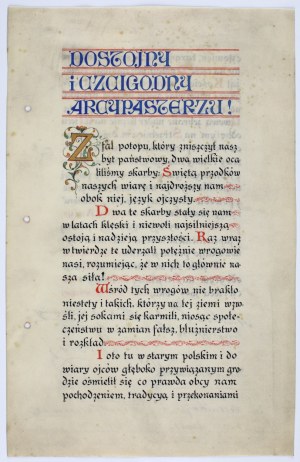 DOSTOJNY
I CZCIGODNY
ARCYPASTERZU!
Z fal potopu, który zniszczył nasz
byt państwowy, dwa wielkie oca
liliśmy skarby: Świętą przodków
naszych wiarę i najdroższy nam
obok niej, język ojczysty.
Dwa te skarby stały się nam
w latach klęski i niewoli najsilniejszą
ostoją i nadzieją przyszłości. Raz wraz
w twierdze te uderzali potężnie wrogowie
nasi, rozumiejąc, że w nich to głównie na
sza siła!
Wśród tych wrogów nie brakło
niestety i takich, którzy na tej ziemi wzro
śli, jej sokami się karmili, niosąc społe-
czeństwu w zamian fałsz, bluźnierstwo
i rozkład.
I oto tu w starym polskim i do
wiary ojców głęboko przywiązanym gro
dzie ośmielił się co prawda obcy nam
pochodzeniem, tradycyą, i przekonaniami